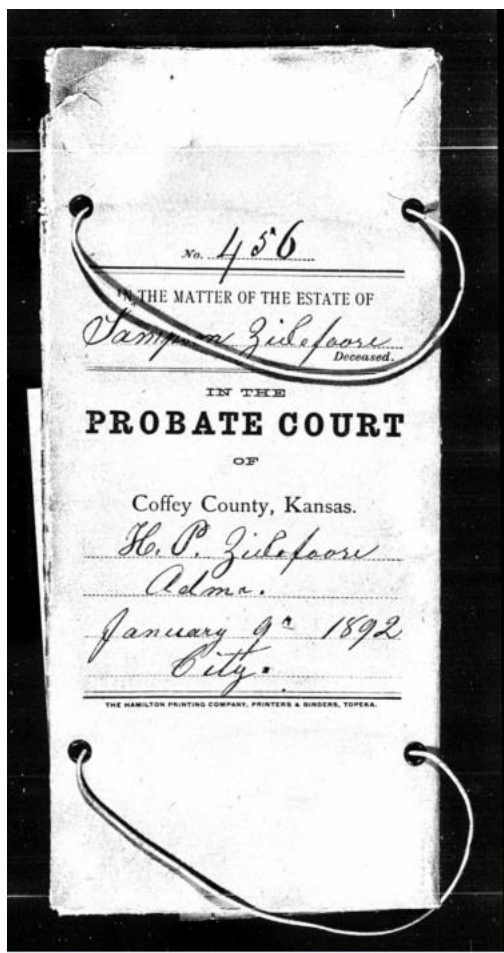 No. 456
IN THE MATTER OF THE ESTATE OF
Sampson Zilefoore
Deceased.
IN THE
PROBATE COURT
OF
Coffey County, Kansas.
H. P. Zilefoore
Admr.
January 9" 1892
City.
THE HAMILTON PRINTING COMPANY, PRINTERS & BINDERS, TOPEKA.